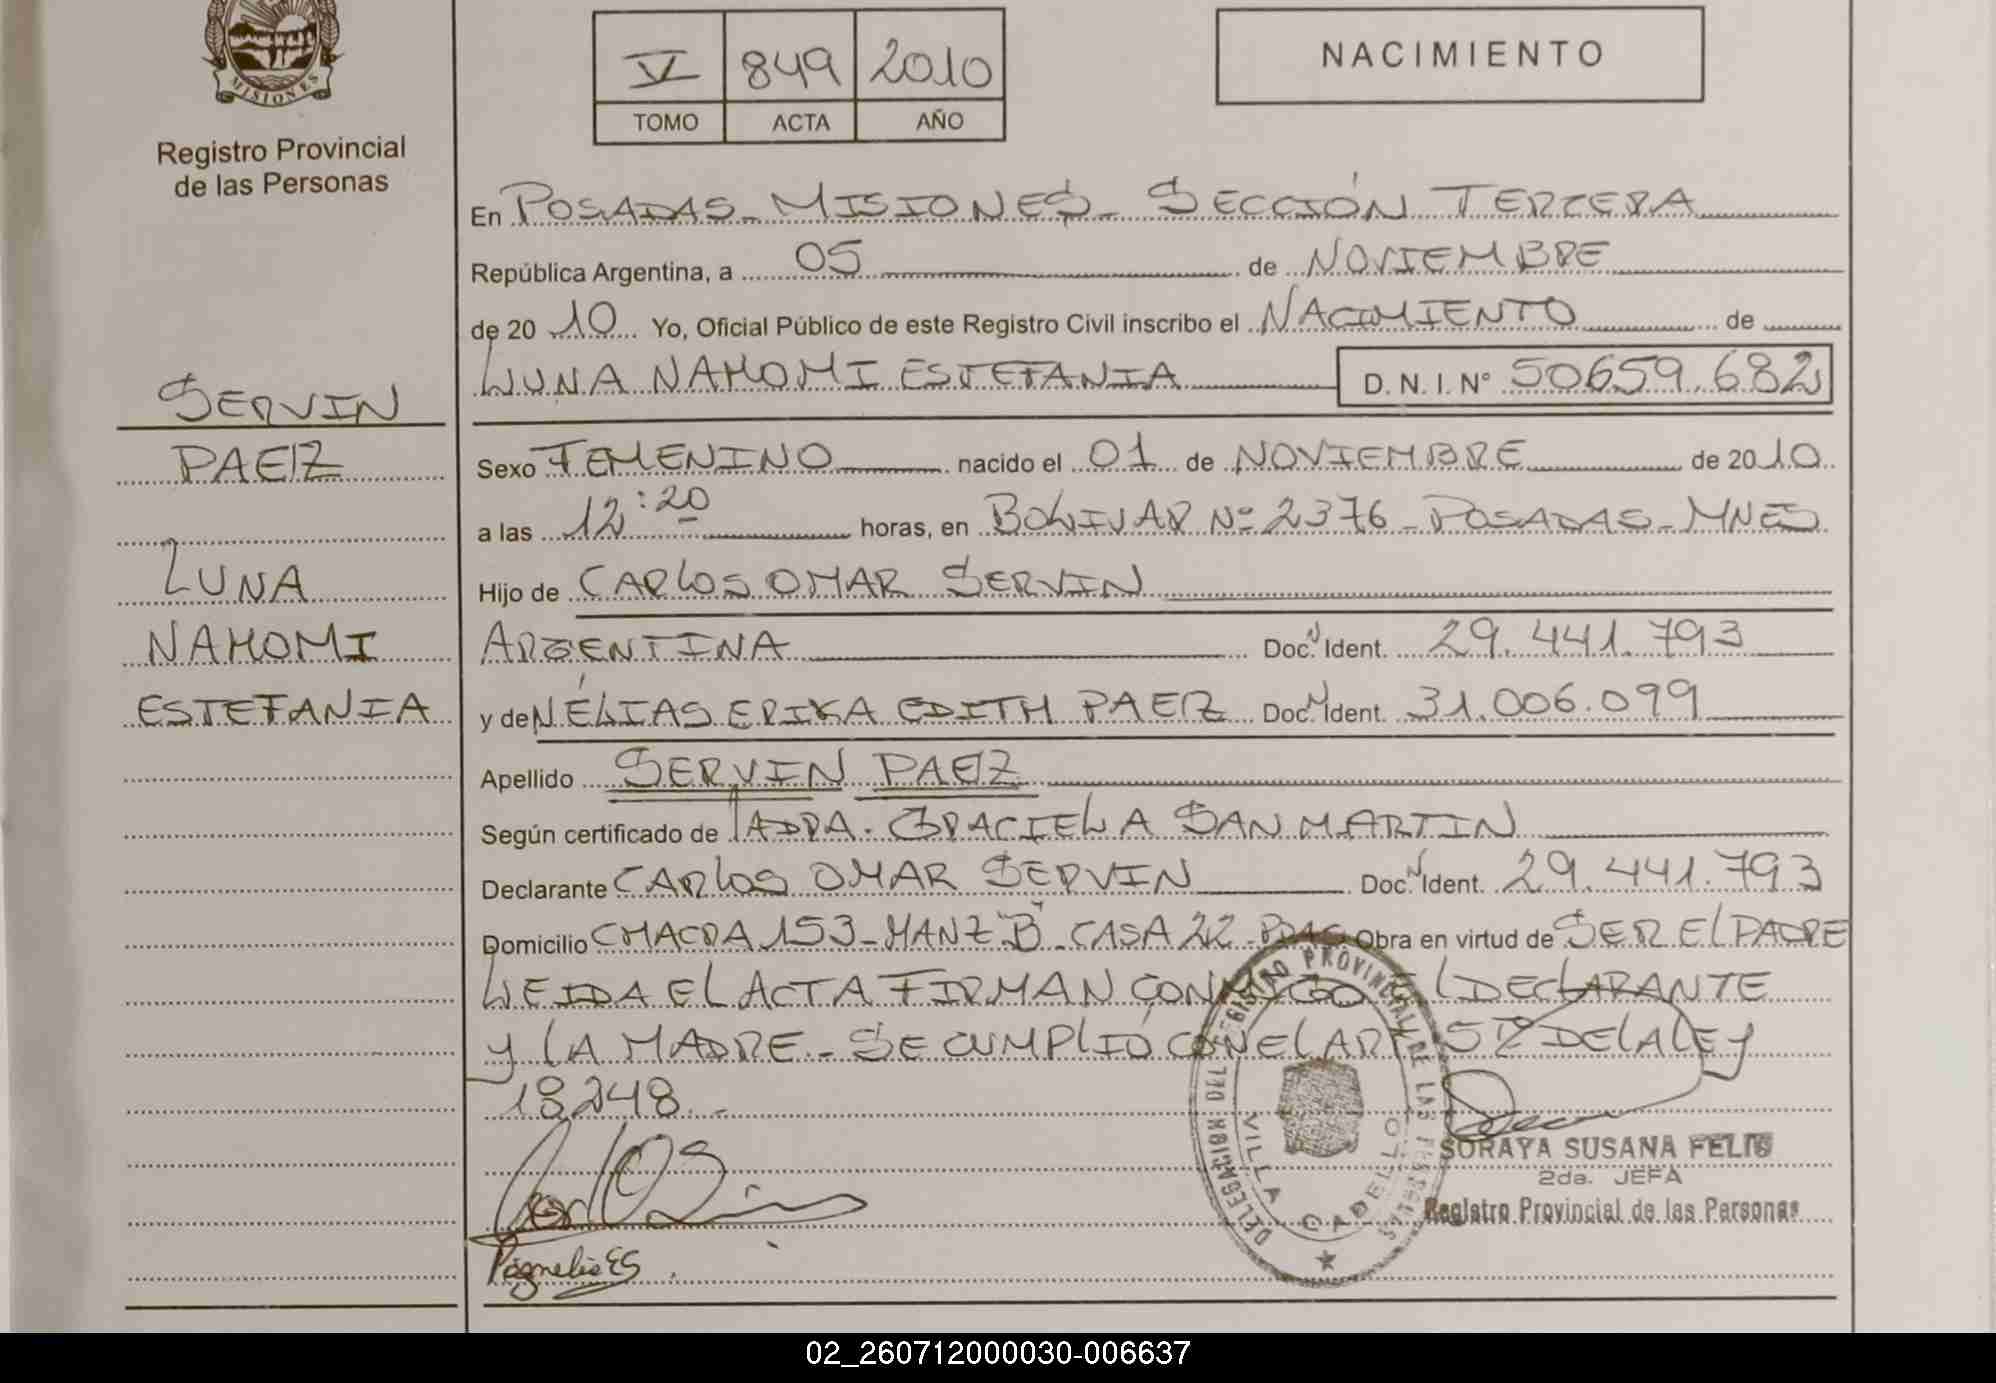 MISIONES
Registro Provincial
de las Personas
SERVIN
PAEZ
LUNA
NAHOMI
ESTEFANIA
V 849 2010
TOMO ACTA AÑO
NACIMIENTO
En POSADAS - MISIONES - SECCIÓN TERCERA
República Argentina, a 05 de NOVIEMBRE
de 2010 Yo, Oficial Público de este Registro Civil inscribo el NACIMIENTO de
LUNA NAHOMI ESTEFANIA D.N.I. N° 50659.682
Sexo FEMENINO nacido el 01 de NOVIEMBRE de 2010
a las 12:20 horas, en BOLIVAR Nº 2376 - POSADAS - MNES
Hijo de CARLOS OMAR SERVIN
ARGENTINA Doc. Ident. 29.441.793
y de NÉLIAS ERIKA EDITH PAEZ Doc. Ident. 31.006.099
Apellido SERVIN PAEZ
Según certificado de GRACIELA SANMARTIN
Declarante CARLOS OMAR SERVIN Doc. Ident. 29.441.793
Domicilio CHACRA 153 - MANZ "B" CASA 22 - PDAS Obra en virtud de SER EL PADRE
LEIDA EL ACTA FIRMAN CONMIGO EL DECLARANTE
Y LA MADRE - SE CUMPLIÓ CON EL ART 5º DE LA LEY
18248 -
DELEGACION DEL REGISTRO PROVINCIAL DE LAS PERSONAS
VILLA CABELLO
SORAYA SUSANA FELIU
2da. JEFA
Registro Provincial de las Personas
02_260712000030-006637